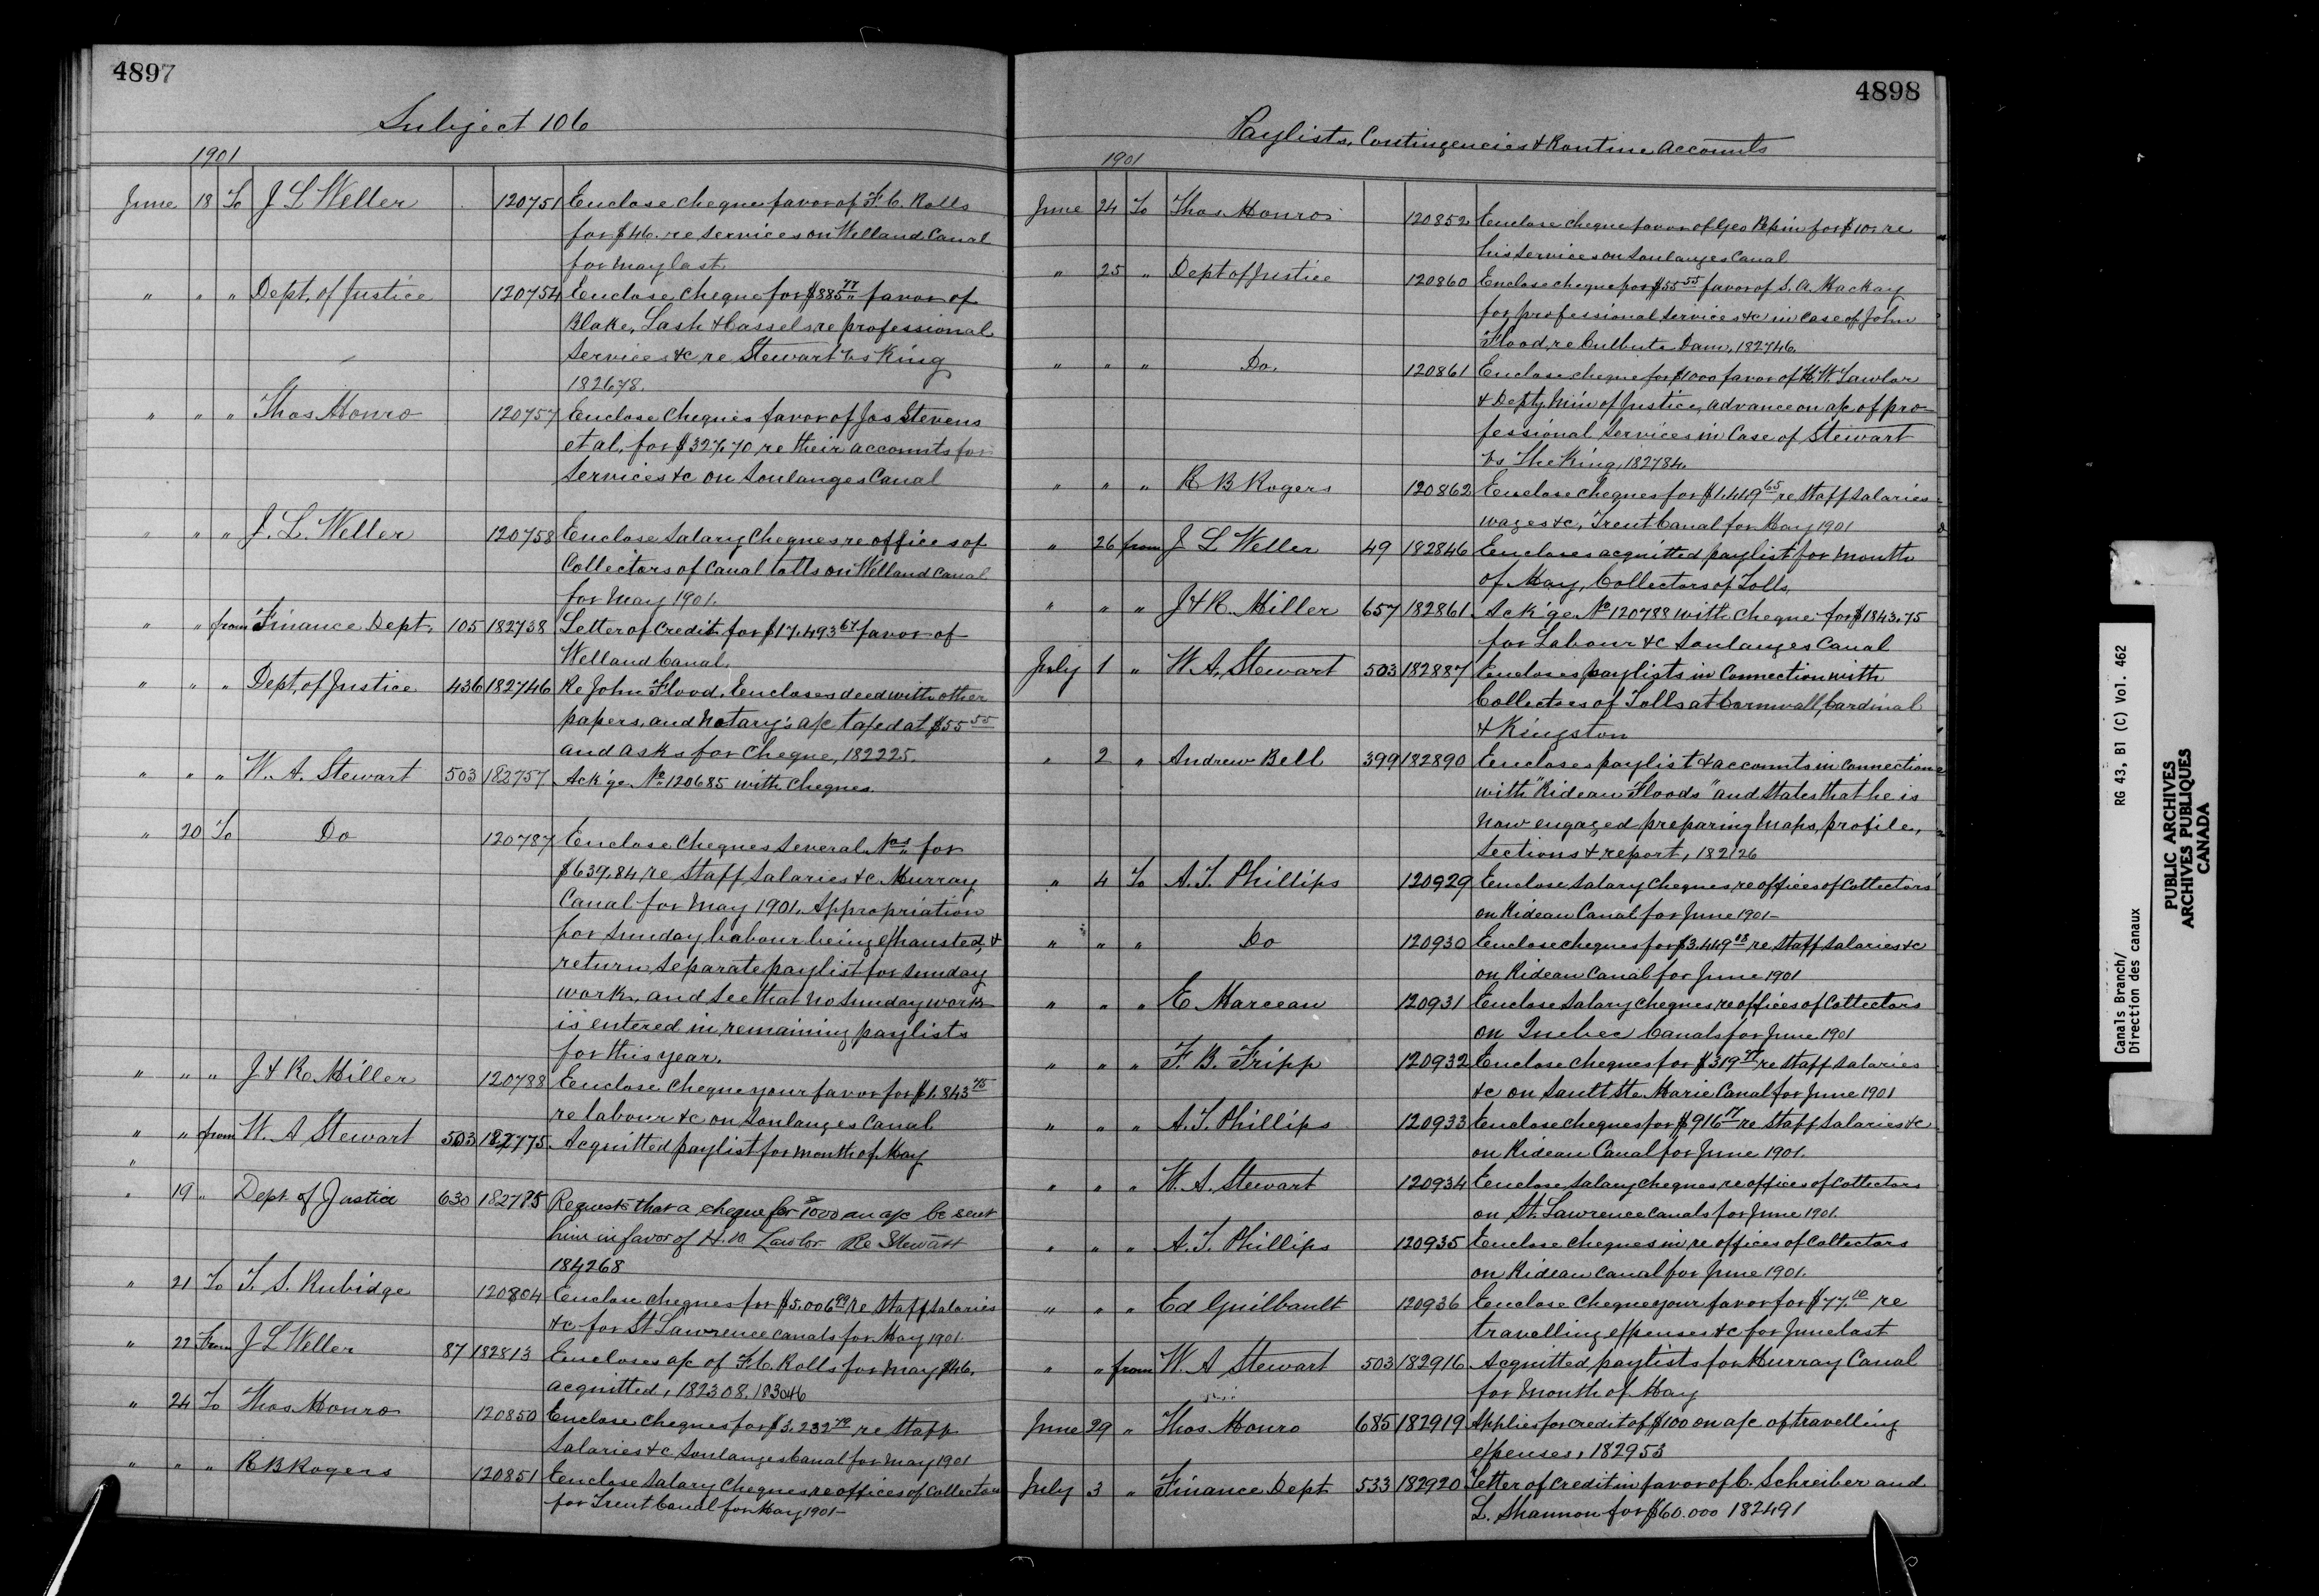 4897
Subject 106
1901
June 18 To J L Weller 120751 Enclose cheque favor of F. C. Rolls
for $46. re services on Welland Canal
for May last.
" " " Dept. of Justice 120754 Enclose cheque for $885 77 favor of
Blake, Lash & Cassels re professional
services &c re Stewart vs King
182678.
" " " Thos Monro 120757 Enclose cheques favor of Jos Stevens
et al. for $327.70 re their accounts for
services &c on Soulanges Canal
" " " J. L. Weller 120758 Enclose salary cheques re offices of
Collectors of Canal tolls on Welland Canal
for May 1901.
" " from Finance Dept. 105 182738 Letter of credit for $17,493 67 favor of
Welland Canal.
" " " Dept. of Justice 436 182746 Re John Flood. Encloses deed with other
papers, and notary's a/c taxed at $55 55
and asks for cheque, 182225.
" " " W. A. Stewart 503 182757 Ack'ge No 120685 with cheques.
" 20 To Do 120787 Enclose cheques several Nos for
$639.84 re staff salaries &c Murray
Canal for May 1901. Appropriation
for Sunday labour being exhausted, &
return separate paylist for Sunday
work, and see that no Sunday work
is entered in remaining paylists
for this year.
" " " J & R Miller 120788 Enclose cheque your favor for $1,843 75
re labour &c on Soulanges Canal
" " from W. A Stewart 503 182775 Acquitted paylist for month of May
"
" 19 " Dept of Justice 630 182785 Requests that a cheque for $1000 on a/c be sent
him in favor of H. W. Lawlor Re Stewart
184268
" 21 To T. S. Rubidge 120804 Enclose cheques for $5,006 99 re staff salaries
&c for St Lawrence canals for May 1901.
" 22 from J L Weller 87 182813 Encloses a/c of F. C. Rolls for May $46.
acquitted, 182308. 183046
" 24 To Thos Monro 120850 Enclose cheques for $3,232 79 re staff
salaries &c Soulanges Canal for May 1901
" " " R B Rogers 120851 Enclose salary cheques re offices of Collectors
for Trent Canal for May 1901-
4898
Paylists, Contingencies & Routine Accounts
1901
June 24 To Thos. Monro 120852 Enclose cheque favor of Geo Pepin for $10. re
his services on Soulanges Canal
" 25 " Dept of Justice 120860 Enclose cheque for $55 55 favor of S. A. Mackay
for professional services &c in case of John
Flood, re Culbute Dam, 182746.
" " " Do. 120861 Enclose cheque for $1000 favor of H. W. Lawlor
& Depty Min of Justice, advance on a/c of pro-
fessional services in Case of Stewart
vs The King, 182784.
" " " R B Rogers 120862 Enclose cheques for $1,449 65 re staff salaries
wages &c, Trent Canal for May 1901
" 26 from J L Weller 49 182846 Encloses acquitted paylist for month
of May, Collectors of Tolls,
" " " J & R. Miller 657 182861 Ack'ge No 120788 with cheque for $1843.75
for Labour &c Soulanges Canal
July 1 " W. A. Stewart 503 182887 Encloses paylists in connection with
Collectors of Tolls at Cornwall, Cardinal
& Kingston
" 2 " Andrew Bell 399 182890 Encloses paylist & accounts in connection
with "Rideau Floods" and states that he is
now engaged preparing maps, profile,
sections & report, 182126
" 4 To A. T. Phillips 120929 Enclose salary cheques, re offices of Collectors
on Rideau Canal for June 1901-
" " " Do 120930 Enclose cheques for $3,449 08 re staff salaries &c
on Rideau Canal for June 1901
" " " E Marceau 120931 Enclose salary cheques, re offices of Collectors
on Quebec Canals for June 1901
" " " F. B. Fripp 120932 Enclose cheques for $319 77 re staff salaries
&c on Sault Ste Marie Canal for June 1901
" " " A. T. Phillips 120933 Enclose cheques for $916 17 re staff salaries &c
on Rideau Canal for June 1901.
" " " W. A. Stewart 120934 Enclose salary cheques, re offices of Collectors
on St. Lawrence Canals for June 1901.
" " " A. T. Phillips 120935 Enclose cheques in re offices of Collectors
on Rideau Canal for June 1901.
" " " Ed Guilbault 120936 Enclose cheque your favor for $77.10 re
travelling expenses &c for June last
" " from W. A Stewart 503 182916 Acquitted paylists for Murray Canal
for month of May
June 29 " Thos. Monro 685 182919 Applies for credit of $100 on a/c of travelling
expenses, 182953
July 3 " Finance Dept 533 182920 Letter of credit in favor of C. Schreiber and
L. Shannon for $60.000 182491
Canals Branch/ RG 43, B1 (C) Vol. 462
Direction des canaux
PUBLIC ARCHIVES
ARCHIVES PUBLIQUES
CANADA